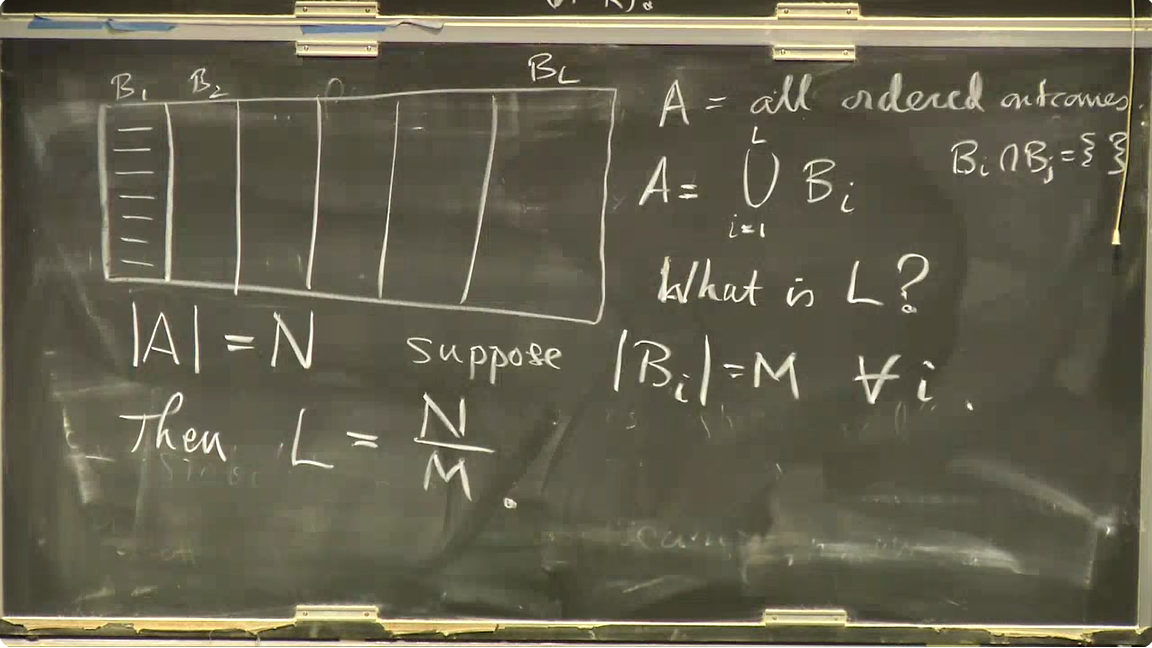 B₁ B₂ B_L
A = all ordered outcomes.
B_i ∩ B_j = { }
A = ⋃_{i=1}^{L} B_i
What is L?
|A| = N suppose |B_i| = M ∀ i.
Then L = N/M.